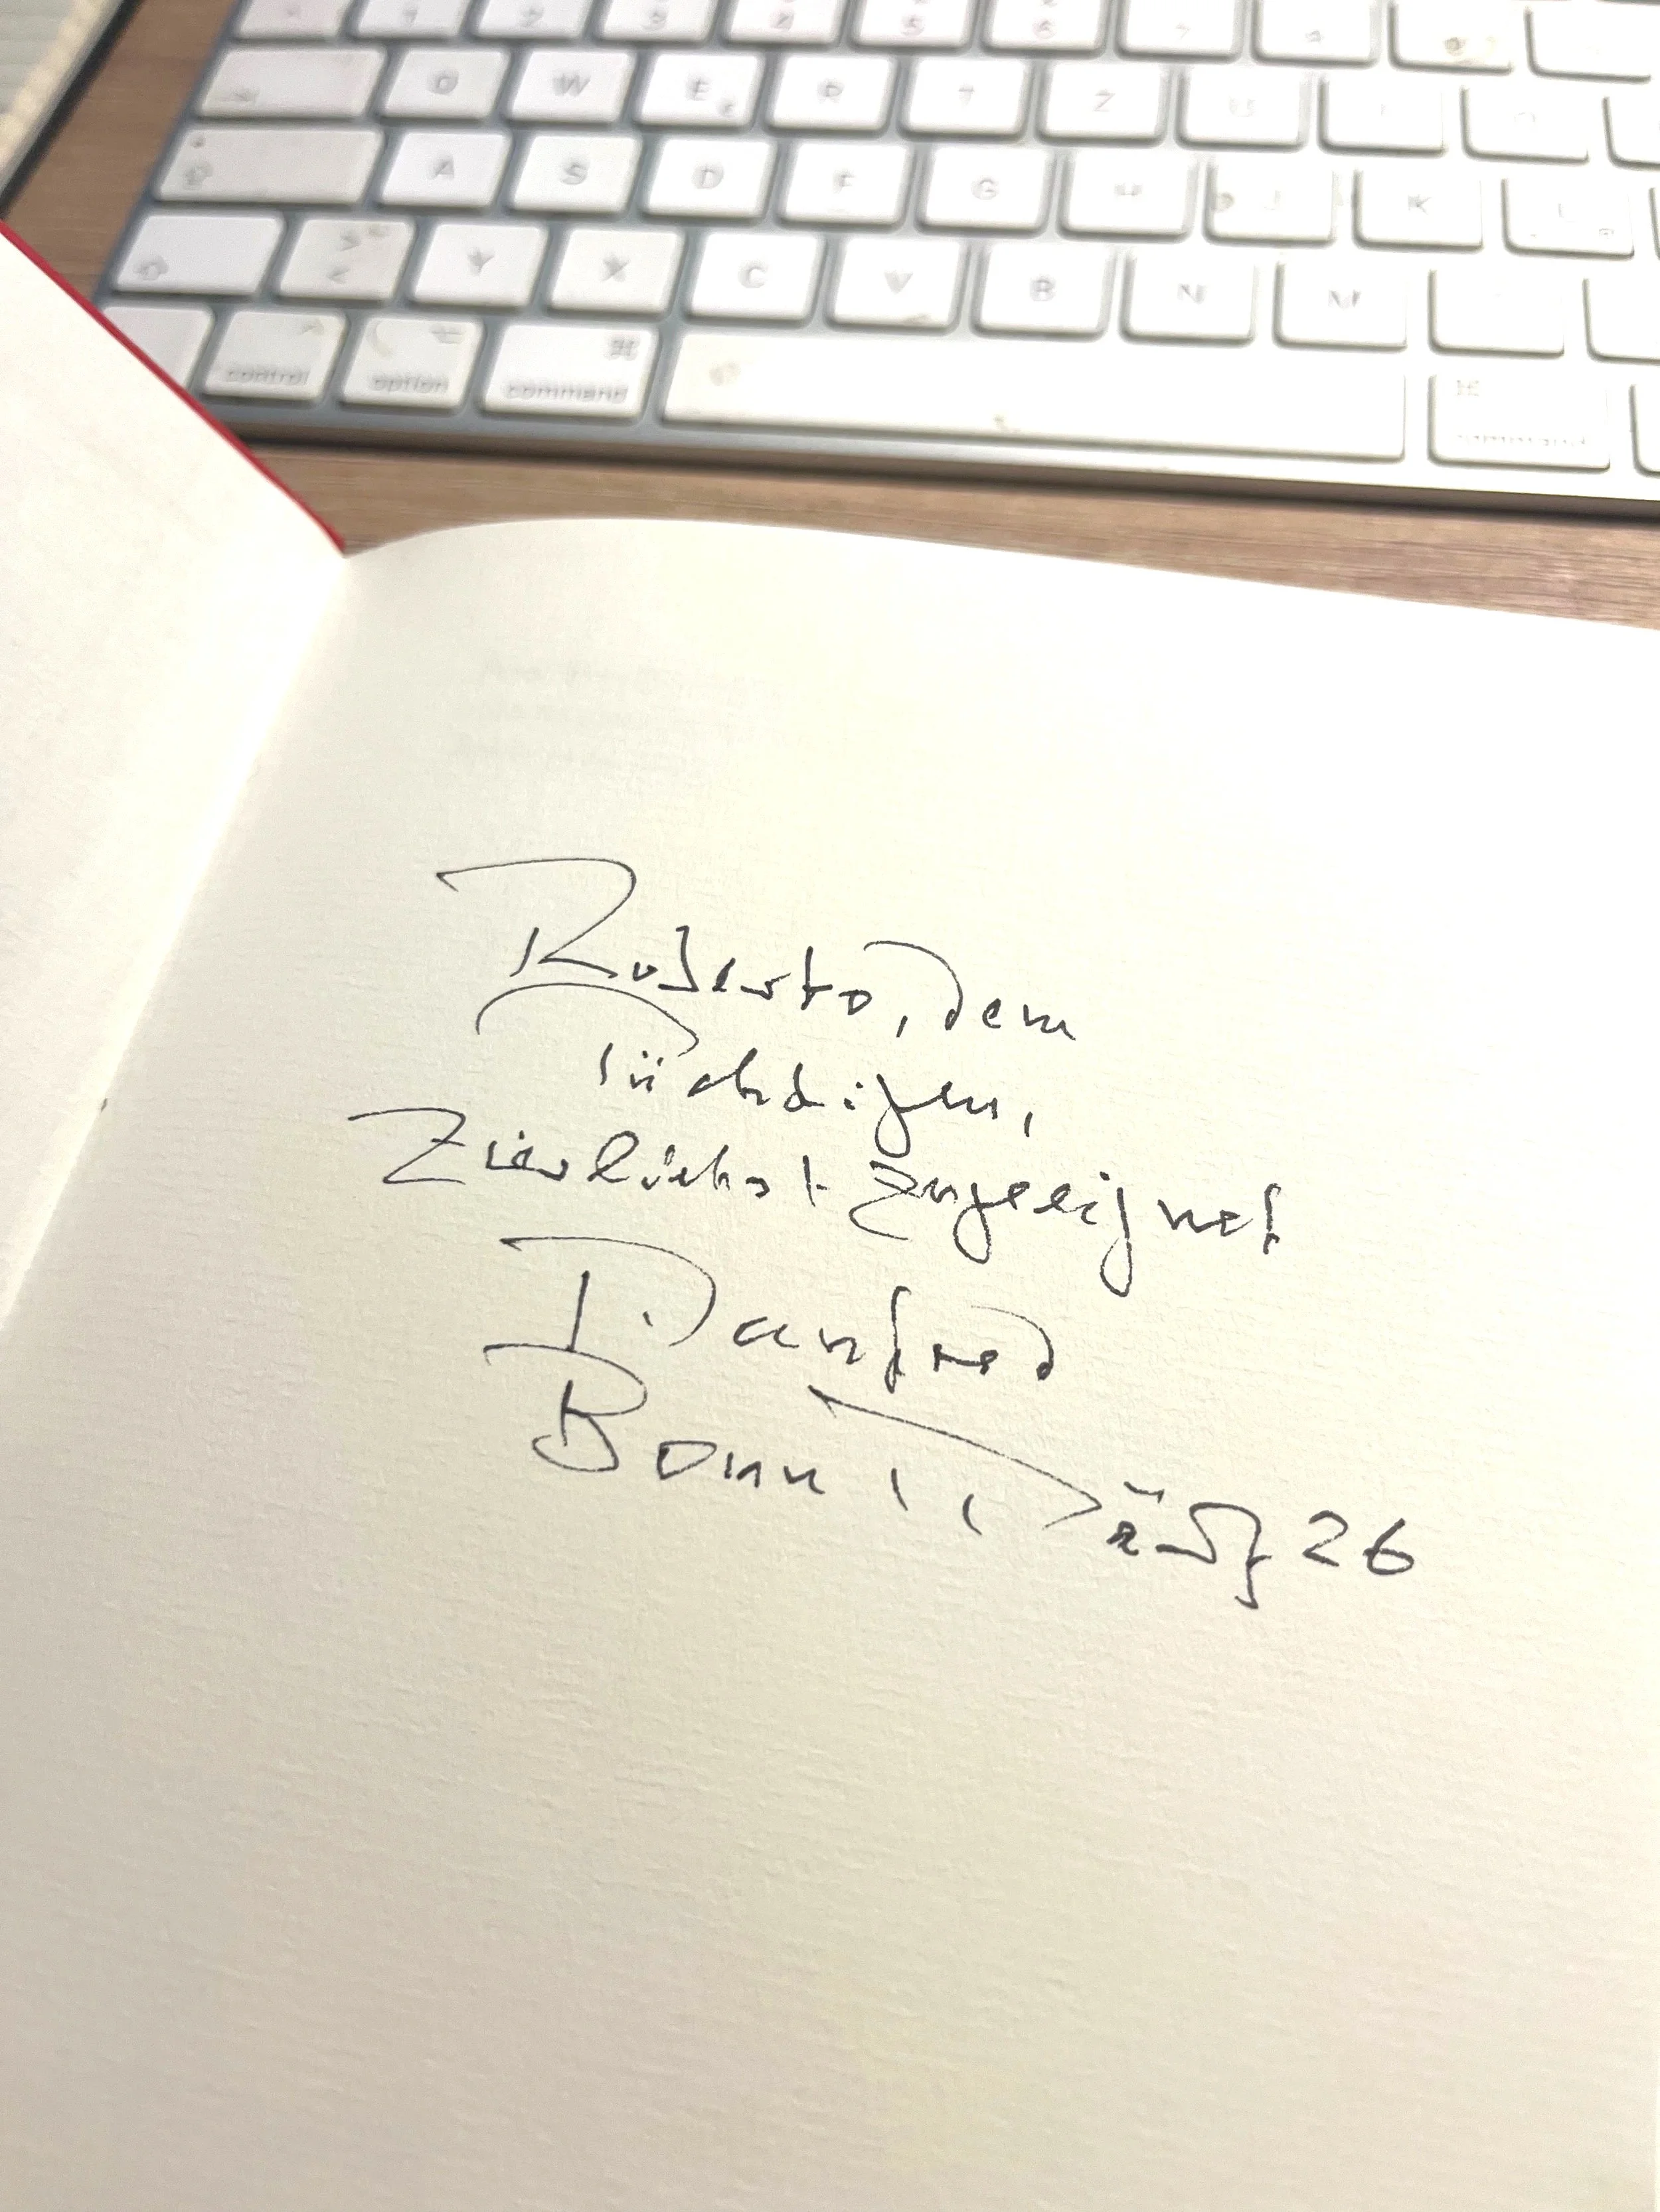 W
E
R
T
Z
U
A
S
D
F
G
H
J
K
L
Y
X
C
V
B
N
M
control
option
command
command
Roberto, dem
Tüchtigen,
Zierlichst zugeeignet
Manfred
Bonn, März 26